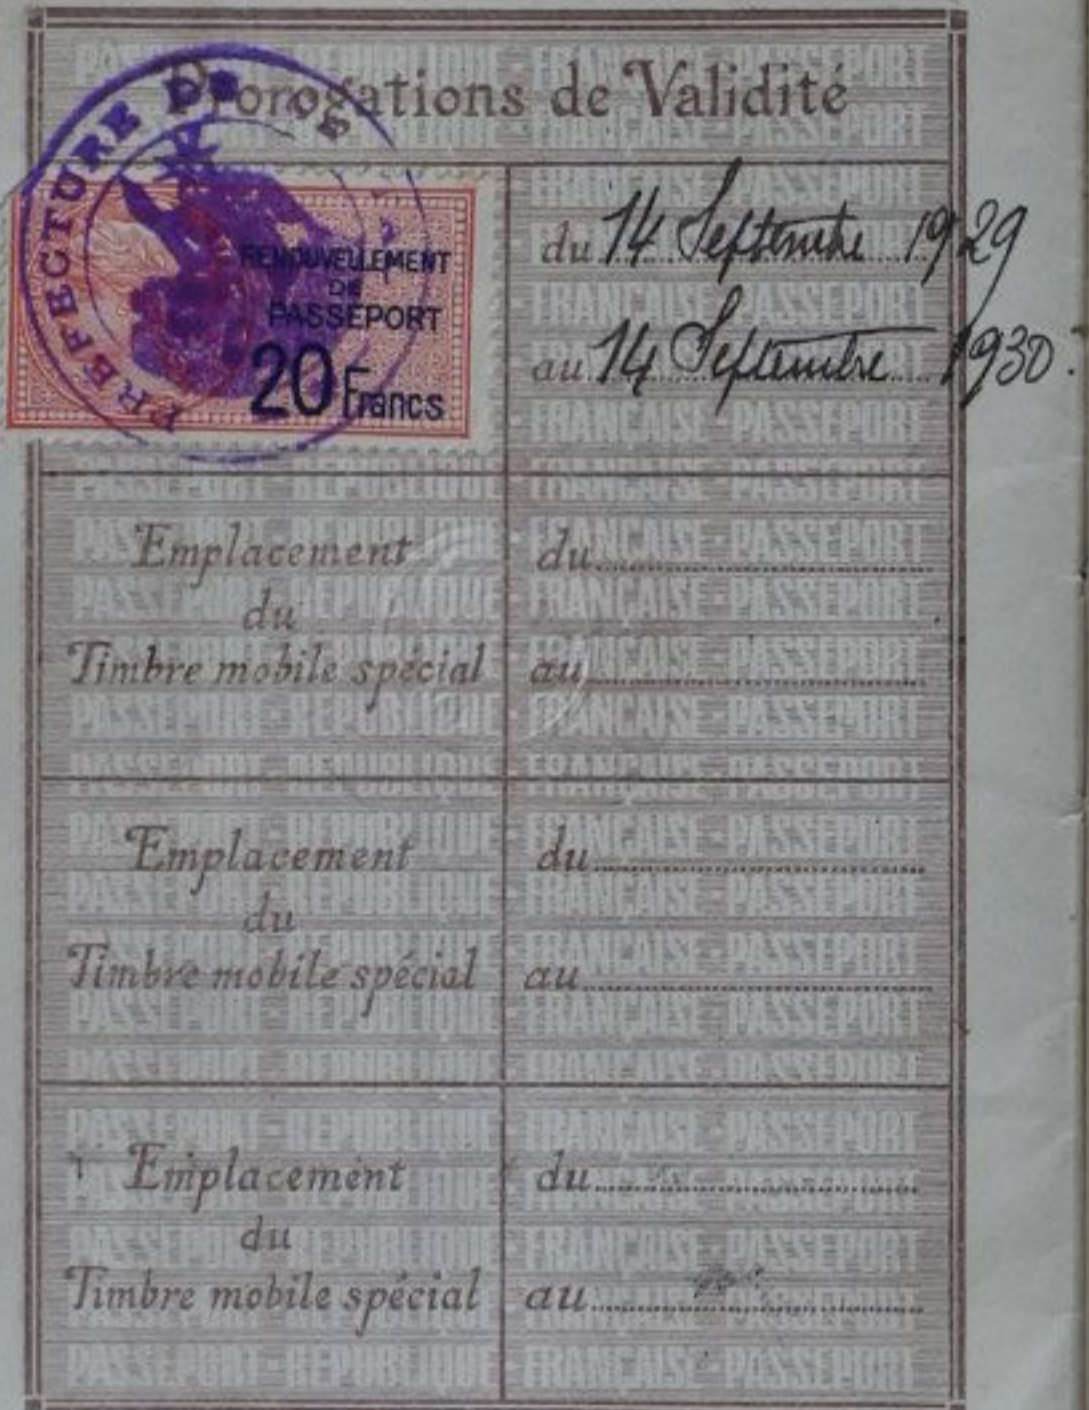 Prorogations de Validité
PRÉFECTURE DE
RENOUVELLEMENT
DE
PASSEPORT
20 Francs
du 14 Septembre 1929
au 14 Septembre 1930.
Emplacement
du
Timbre mobile spécial
du
au
Emplacement
du
Timbre mobile spécial
du
au
Emplacement
du
Timbre mobile spécial
du
au
PASSEPORT - REPUBLIQUE - FRANÇAISE - PASSEPORT